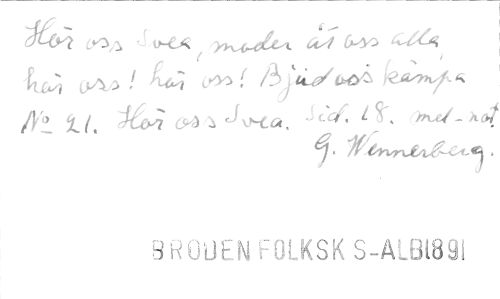 Hör oss Svea, moder åt oss alla,
hör oss! hör oss! Bjud oss kämpa
No 21. Hör oss Svea. Sid. 18. mel-not.
G. Wennerberg.
BRODEN FOLKSK S-ALB1891